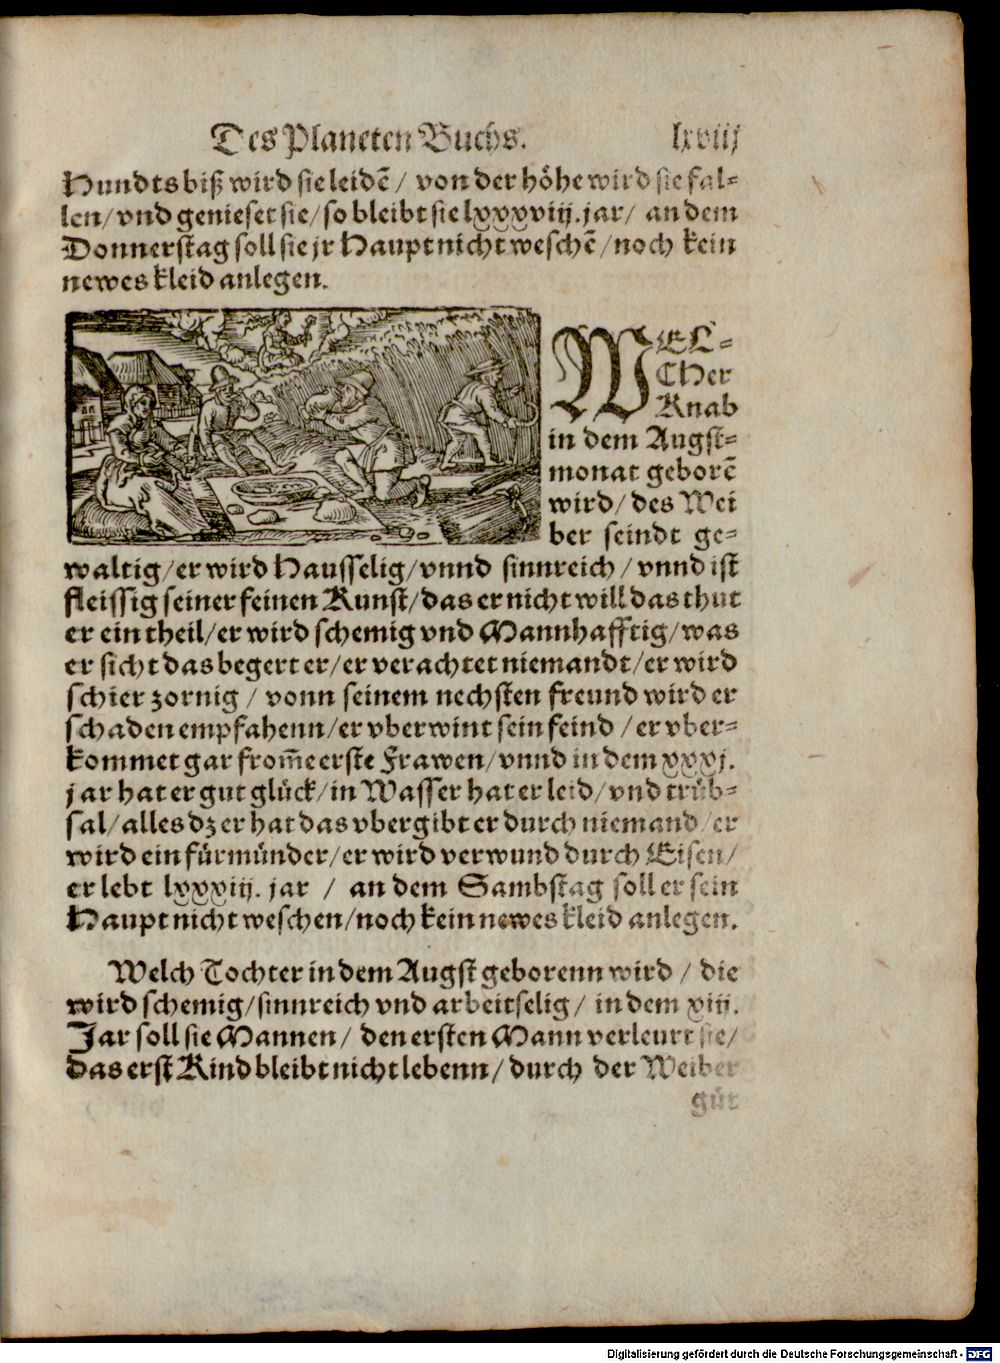 Des Planeten Buchs. lxviij
Hundts biß wird sie leidē / von der höhe wird sie fal-
len / vnd genieset sie / so bleibt sie lxxxviij. jar / an dem
Donnerstag soll sie jr Haupt nicht weschē / noch kein
newes kleid anlegen.
WEL-
Cher
Knab
in dem Augst-
monat geborē
wird / des Wei
ber seindt ge-
waltig / er wird Hausselig / vnnd sinnreich / vnnd ist
fleissig seiner feinen Kunst / das er nicht will das thut
er ein theil / er wird schemig vnd Mannhafftig / was
er sicht das begert er / er verachtet niemandt / er wird
schier zornig / vonn seinem nechsten freund wird er
schaden empfahenn / er vberwint sein feind / er vber-
kommet gar from̄e erste Frawen / vnnd in dem xxxj.
jar hat er gut glück / in Wasser hat er leid / vnd trüb-
sal / alles dz er hat das vbergibt er durch niemand / er
wird ein fürmünder / er wird verwund durch Eisen /
er lebt lxxxiij. jar / an dem Sambstag soll er sein
Haupt nicht weschen / noch kein newes kleid anlegen.
Welch Tochter in dem Augst geborenn wird / die
wird schemig / sinnreich vnd arbeitselig / in dem xiij.
Jar soll sie Mannen / den ersten Mann verleurt sie /
das erst Kind bleibt nicht lebenn / durch der Weiber
güt
Digitalisierung gefördert durch die Deutsche Forschungsgemeinschaft - DFG